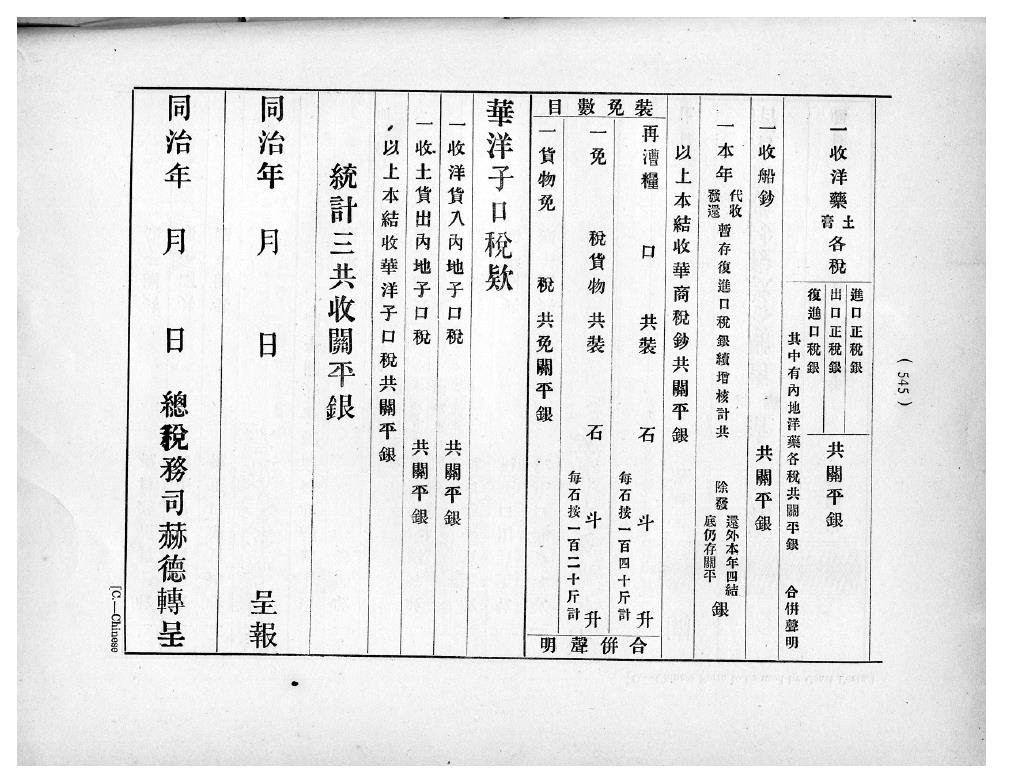 一收洋藥土膏各稅
進口正稅銀
出口正稅銀
復進口稅銀
共關平銀
其中有內地洋藥各稅共關平銀 合併聲明
一收船鈔 共關平銀
一本年代收發還暫存復進口稅銀續增核計共 除發還外本年四結底仍存關平銀
以上本結收華商稅鈔共關平銀
裝免數目
再漕糧 口 共裝 石 斗 升
每石按一百四十斤計
一免 稅貨物 共裝 石 斗 升
每石按一百二十斤計
一貨物免 稅 共免關平銀
合併聲明
華洋子口稅欵
一收洋貨入內地子口稅 共關平銀
一收土貨出內地子口稅 共關平銀
以上本結收華洋子口稅共關平銀
統計三共收關平銀
同治年 月 日 呈報
同治年 月 日 總稅務司赫德轉呈
( 545 )
[C.—Chinese